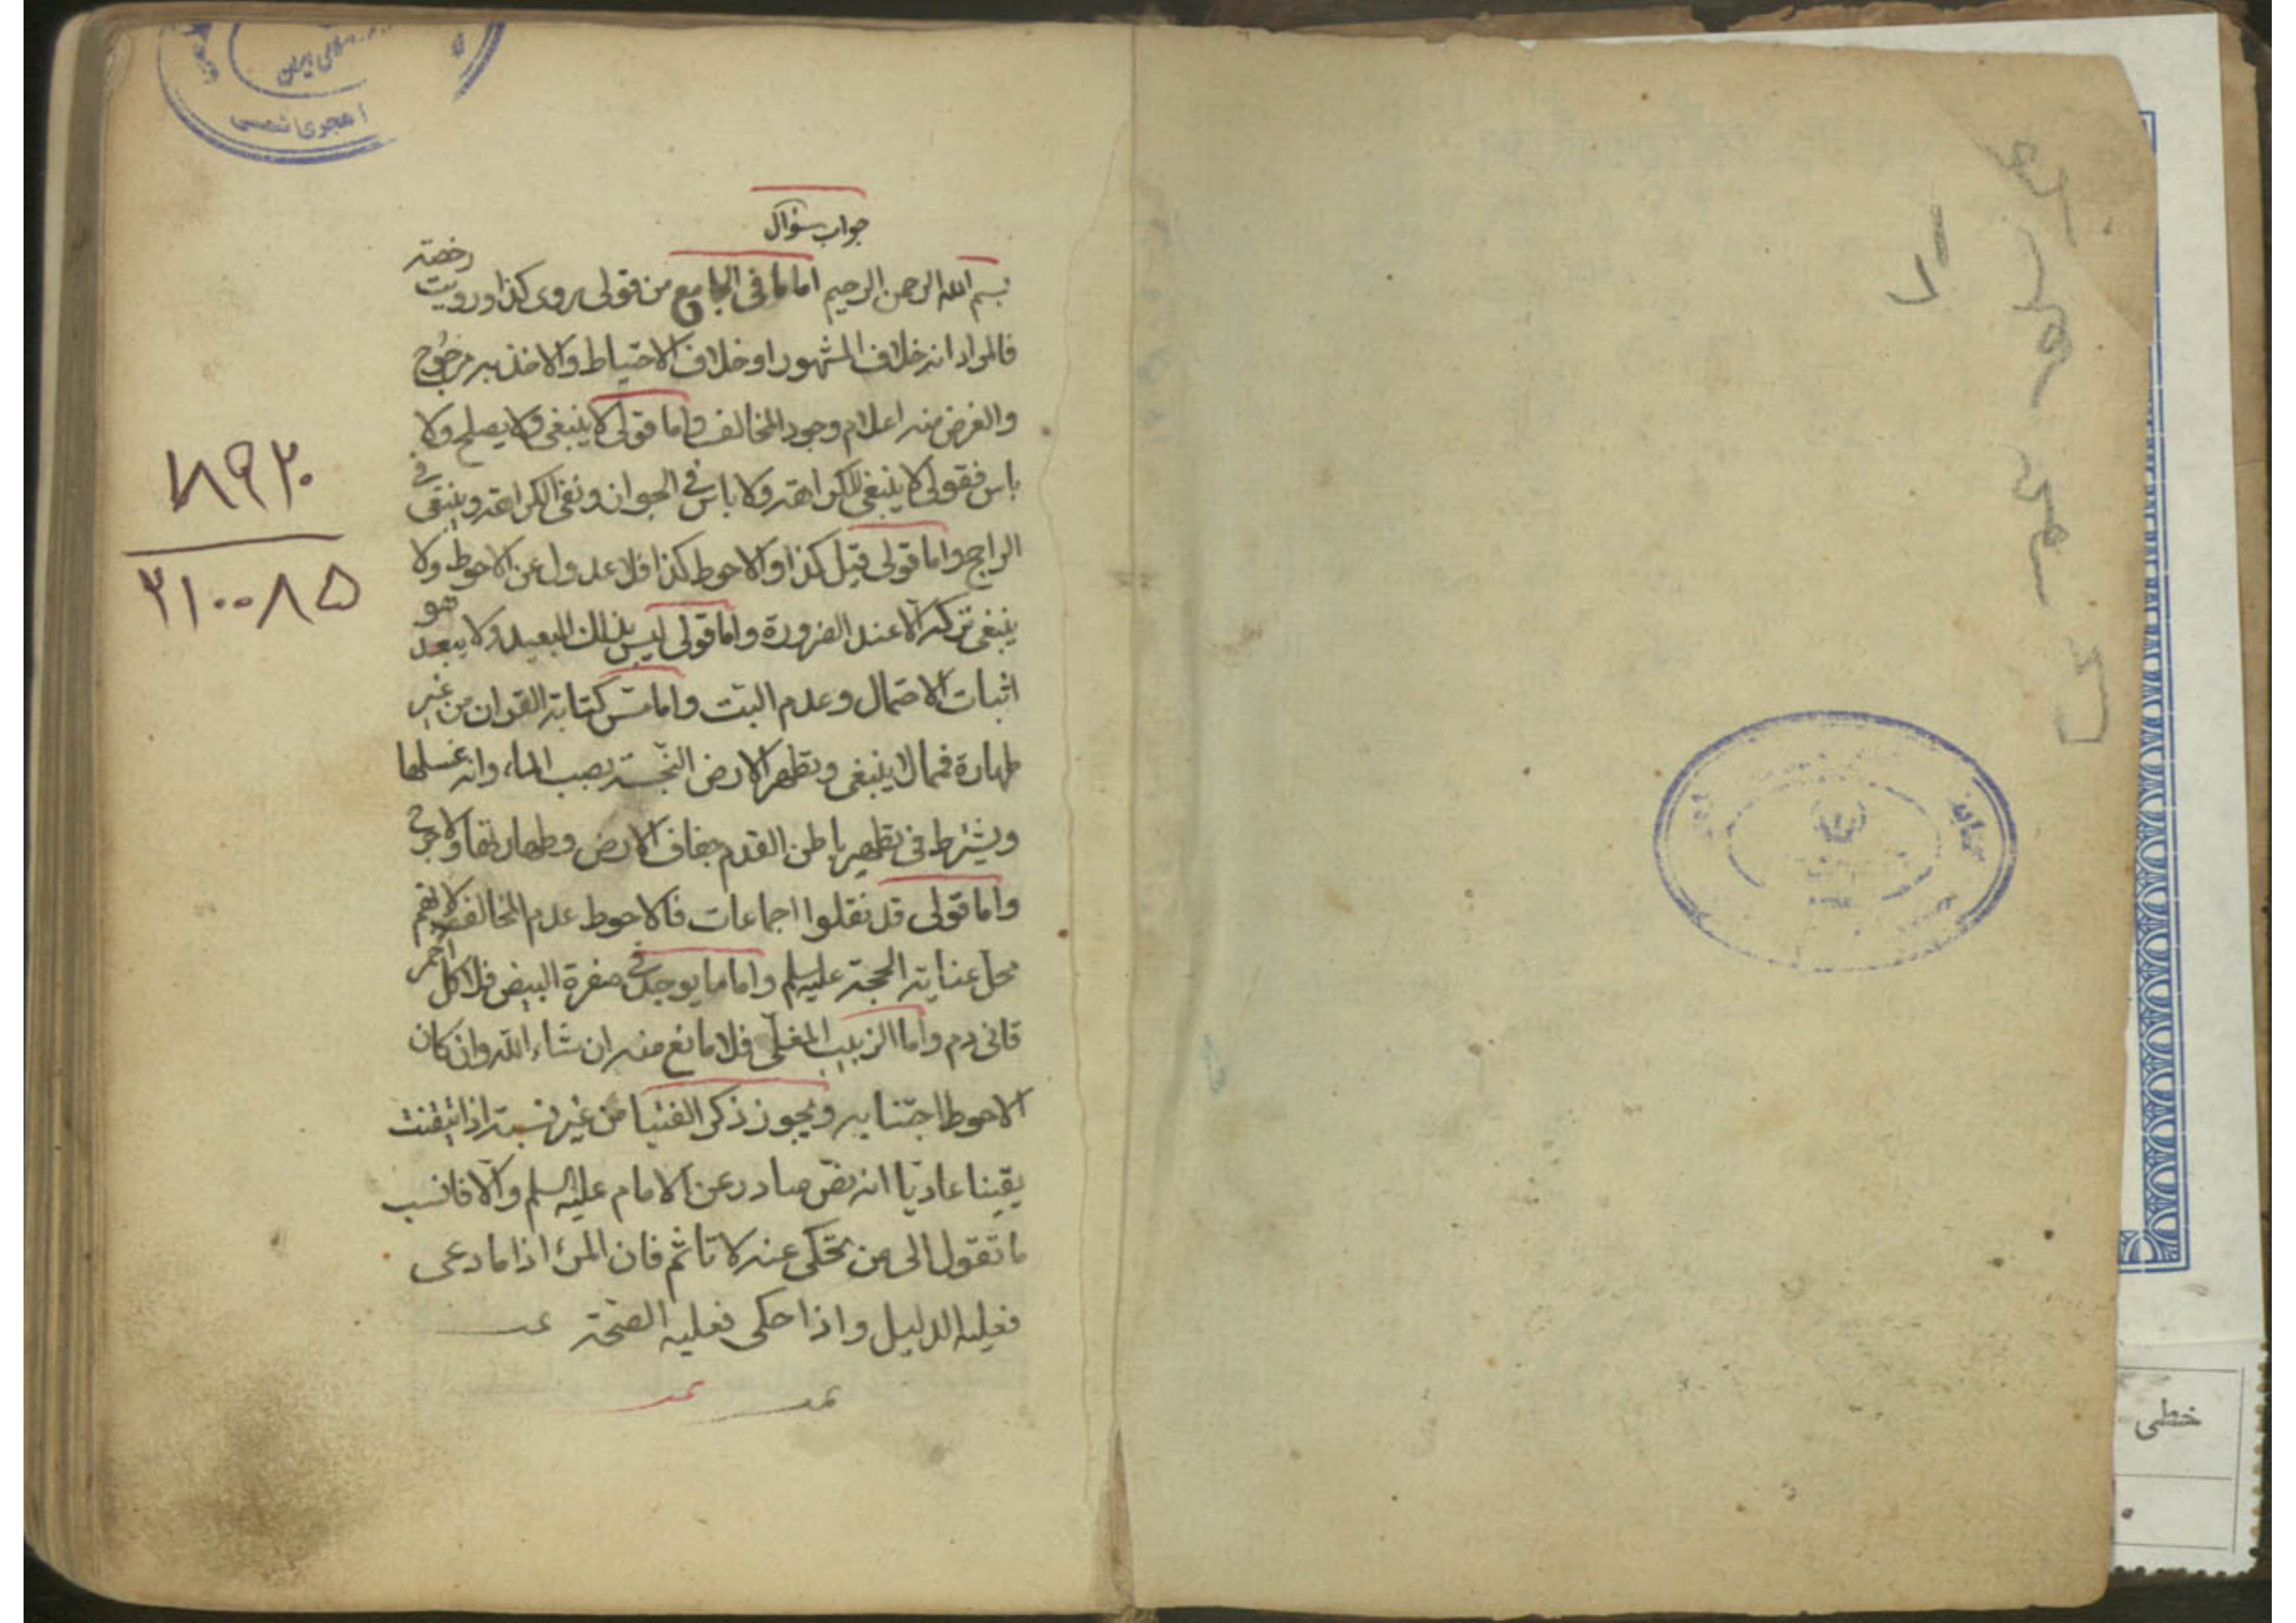 جواب سؤال
بسم الله الرحمن الرحيم اما ما فى الجامع من قولى يروى كذا ورويت رخصة
فالمراد انه خلاف المشهور او خلاف الاحتياط والاخذ به مرجوح
والغرض منه اعلام وجود المخالف واما قولى لا ينبغى ولا يصلح ولا
باس فقولى لا ينبغى للكراهة ولا باس فى الجواز ونفى الكراهة وينتفى فى
الراجح واما قولى قيل كذا والاحوط كذا فلا عدول عن الاحوط ولا
ينبغى تركه الا عند الضرورة واما قولى ليس بذلك البعيد ولا يبعد هو
اثبات الاحتمال وعدم البت واما مس كتابة القران من غير
طهارة فمما لا ينبغى وتطهر الارض النجسة بصب الماء وانه غسلها
ويشترط فى تطهير باطن القدم جفاف الارض وطهارتها
واما قولى قد نقلوا اجماعات فالاحوط عدم المخالفة لانهم
محل عناية الحجة عليه السلم واما ما يوجد فى صفرة البيض فلا كل احمر
قانى دم واما الزبيب المغلّى فلا مانع منه ان شاء الله وان كان
الاحوط اجتنابه ويجوز ذكر الفتيا من غير نسبة اذا تيقنت
يقينا عاديا انه نص صادر عن الامام عليه السلم والا فانسب
ما تقول الى من تحكى عنه لا تاثم فان المرء اذا ما دعى
فعليه الدليل واذا حكى فعليه الصحة
۸۹۲۰
۲۱۰۰۸۵
هجرى شمسى
خطى